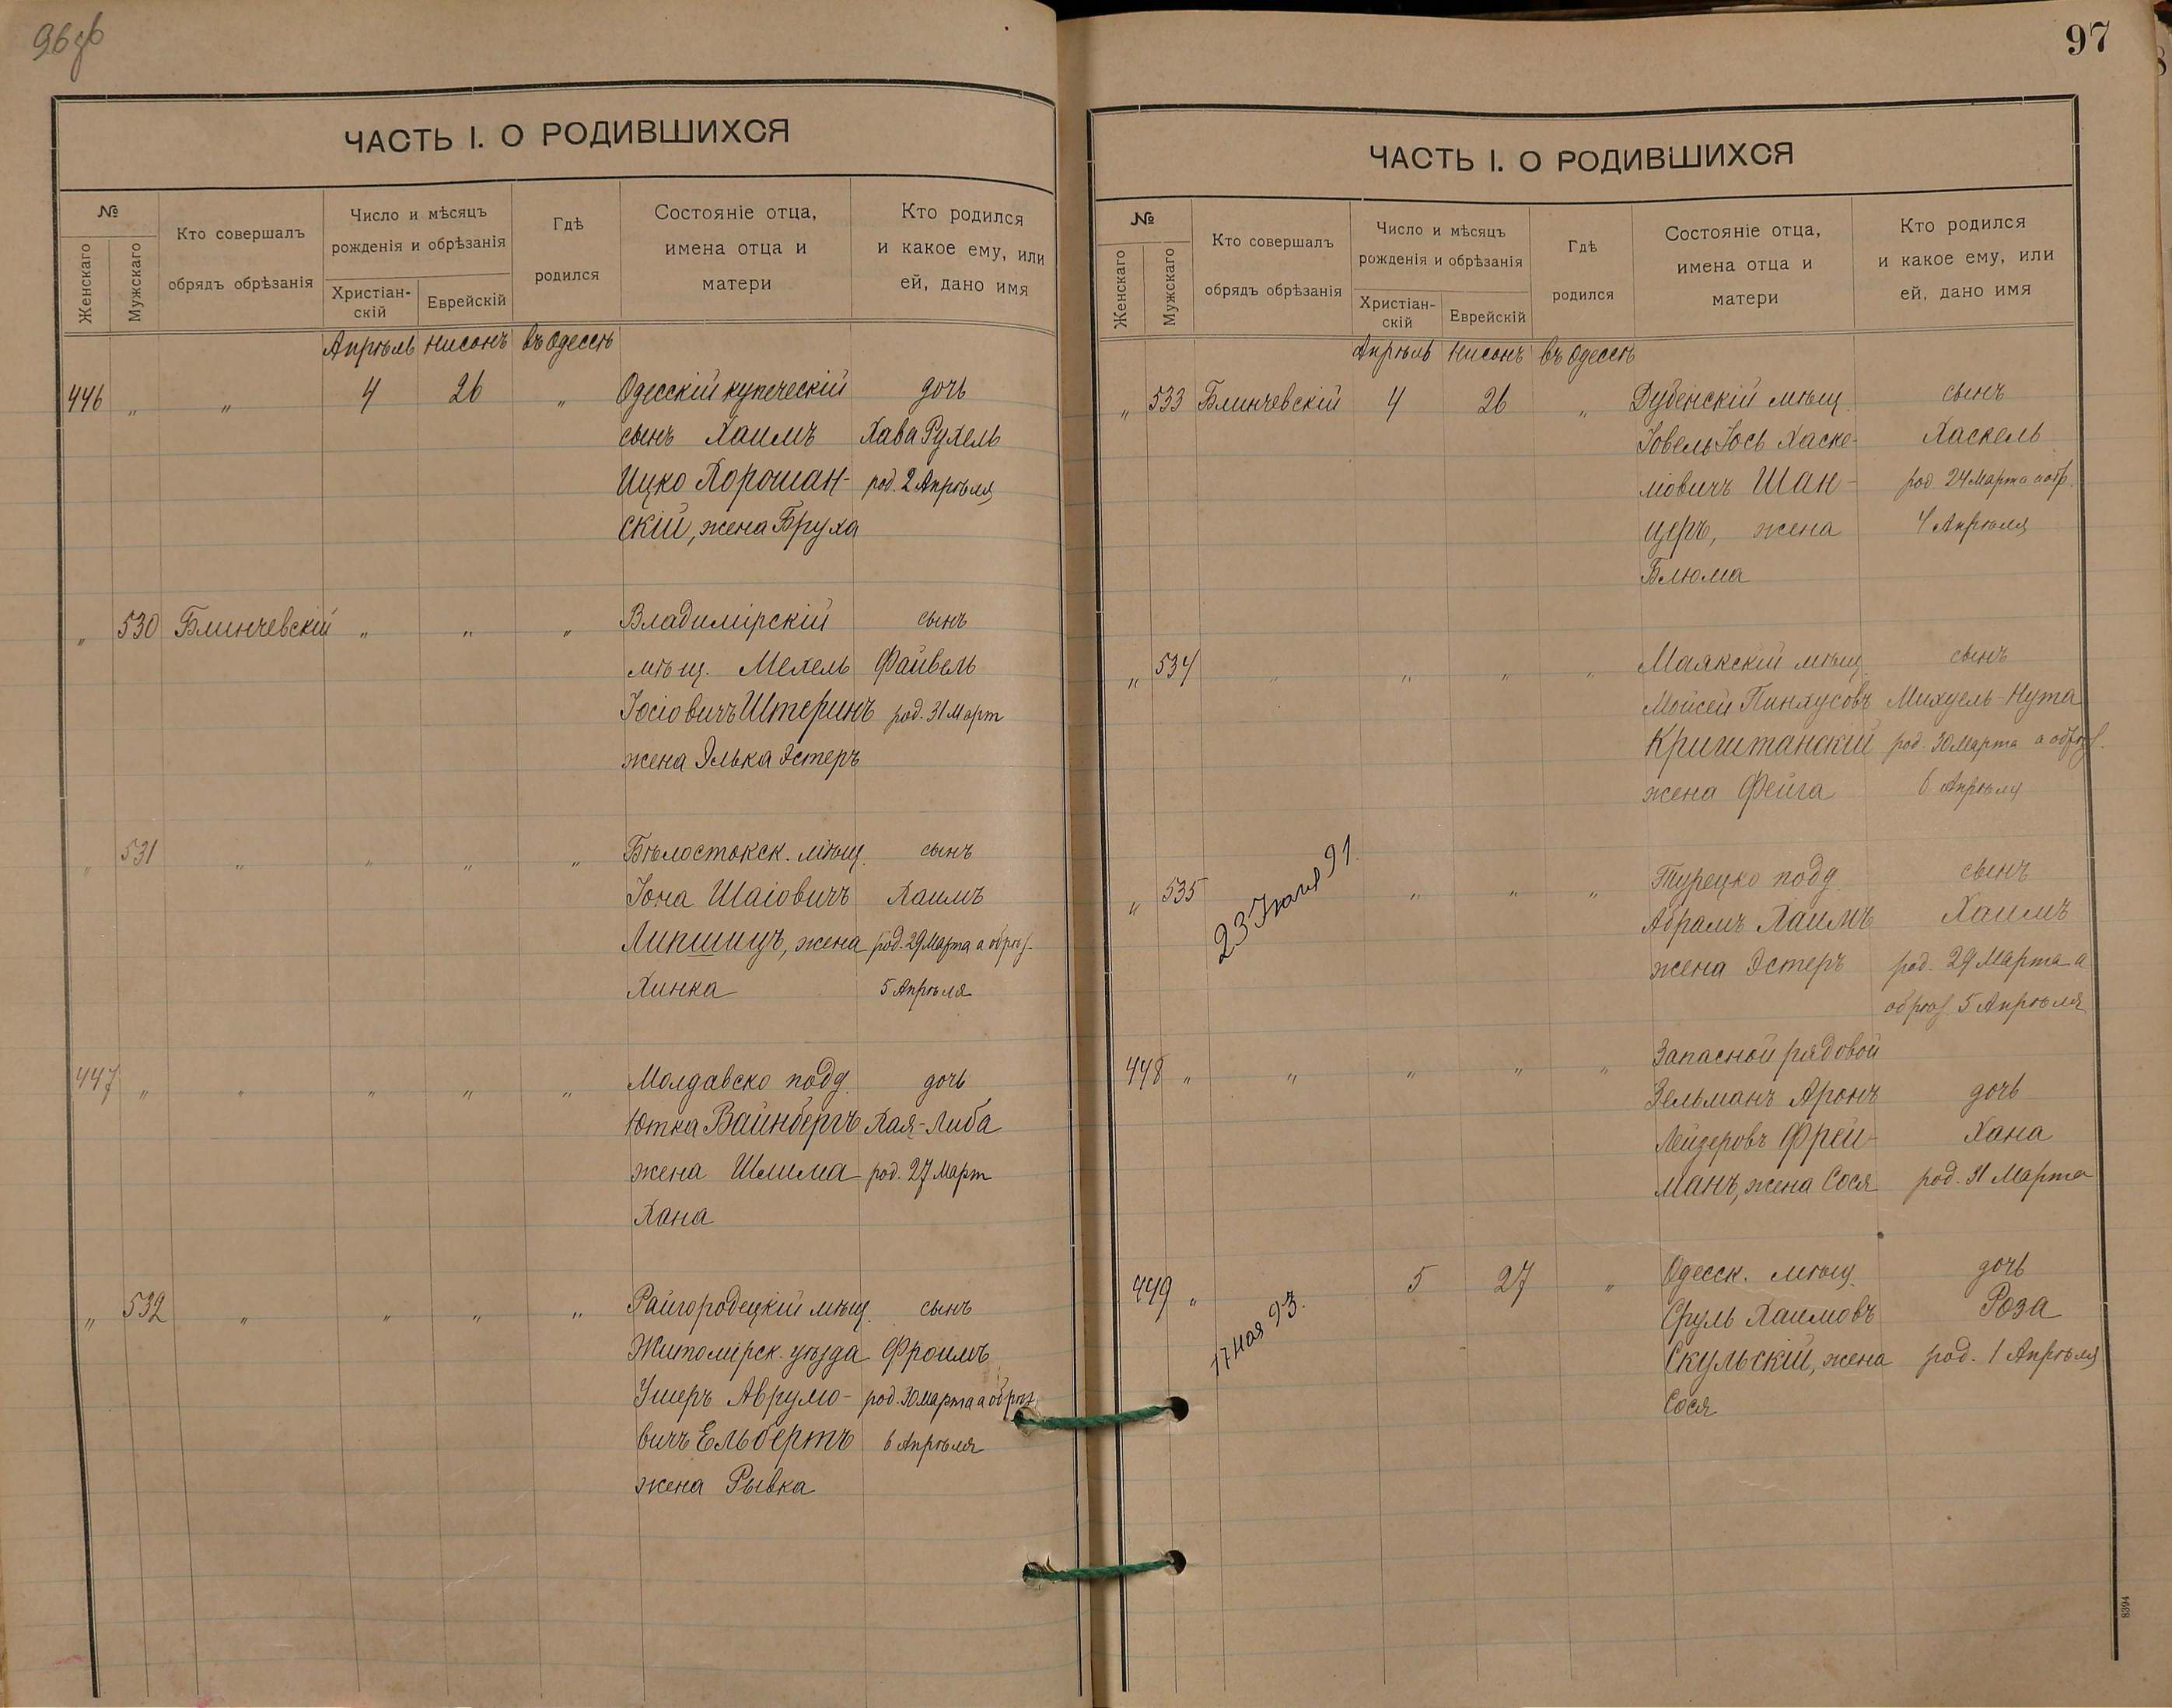 96об
ЧАСТЬ I. О РОДИВШИХСЯ
№
Женскаго
Мужскаго
Кто совершалъ
обрядъ обрѣзанія
Число и мѣсяцъ
рожденія и обрѣзанія
Христіан-
скій
Еврейскій
Гдѣ
родился
Состояніе отца,
имена отца и
матери
Кто родился
и какое ему, или
ей, дано имя
Апрѣль Нисонъ въ Одессѣ
446 " " 4 26 " Одесскій купеческій дочь
сынъ Хаимъ Хава Рухель
Ицко Хорошан- род. 2 Апрѣля
скій, жена Бруха
" 530 Блинчевскій " " " Владимірскій сынъ
мѣщ. Мехель Файвель
Іосіовичъ Штеринъ род. 31 Март
жена Элька Эстеръ
" 531 " " " " Бѣлостокск. мѣщ. сынъ
Іона Шаіовичъ Хаимъ
Липшицъ, жена род. 29 Марта а обрѣз.
Хинка 5 Апрѣля
447 " " " " " Молдавско подд. дочь
Ютка Вайнбергъ Хая-Либа
жена Шлима род. 27 Март
Хана
" 532 " " " " Райгородецкій мѣщ. сынъ
Житомірск. уѣзда Фроимъ
Ушеръ Аврумо- род. 30 Марта а обрѣз
вичъ Ельбертъ 6 Апрѣля
жена Рывка
97
ЧАСТЬ I. О РОДИВШИХСЯ
№
Женскаго
Мужскаго
Кто совершалъ
обрядъ обрѣзанія
Число и мѣсяцъ
рожденія и обрѣзанія
Христіан-
скій
Еврейскій
Гдѣ
родился
Состояніе отца,
имена отца и
матери
Кто родился
и какое ему, или
ей, дано имя
Апрѣль Нисонъ въ Одессѣ
" 533 Блинчевскій 4 26 " Дубенскій мѣщ. сынъ
Іовель Іось Хаске- Хаскель
ліовичъ Шан- род. 24 Марта а обр.
церъ, жена 4 Апрѣля
Блюма
" 534 " " " " Маякскій мѣщ. сынъ
Мойсей Пинхусовъ Михуель-Нута
Криштанскій род. 30 Марта а обрѣз.
жена Фейга 6 Апрѣля
" 535 23 Іюля 91. " " " Турецко подд. сынъ
Абрамъ Хаимъ Хаимъ
жена Эстеръ род. 29 Марта а
обрѣз. 5 Апрѣля
448 " " " " " Запасной рядовой
Зельманъ Аронъ дочь
Лейзеровъ Фрей- Хана
манъ, жена Сося род. 31 Марта
449 " 17 Мая 93. 5 27 " Одесск. мѣщ. дочь
Сруль Хаимовъ Роза
Скульскій, жена род. 1 Апрѣля
Сося
8394